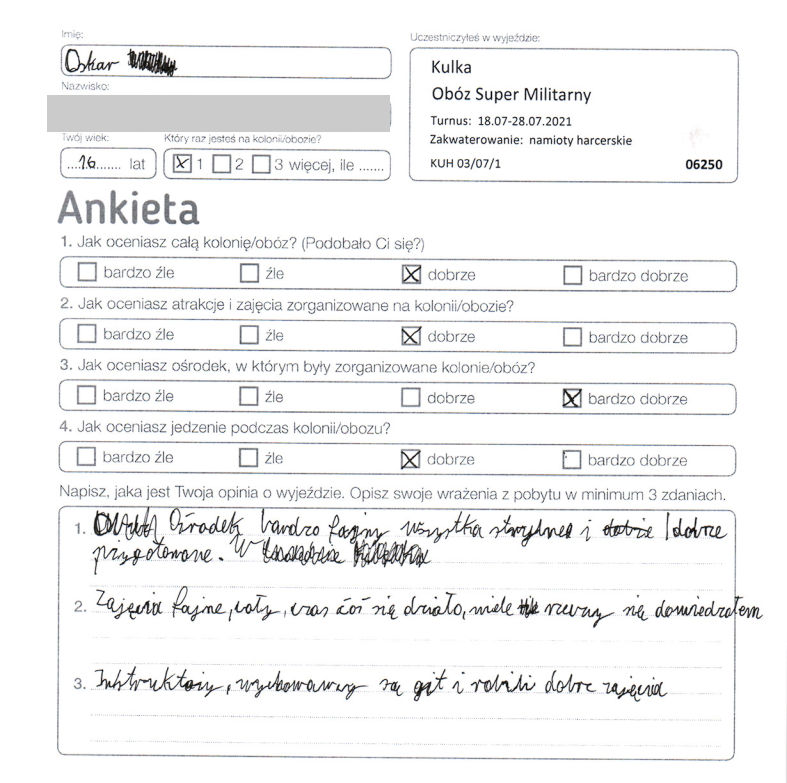 Imię:
Oskar
Nazwisko:
Twój wiek:
16 lat
Który raz jesteś na kolonii/obozie?
1 2 3 więcej, ile .......
Uczestniczyłeś w wyjeździe:
Kulka
Obóz Super Militarny
Turnus: 18.07-28.07.2021
Zakwaterowanie: namioty harcerskie
KUH 03/07/1 06250
Ankieta
1. Jak oceniasz całą kolonię/obóz? (Podobało Ci się?)
bardzo źle źle dobrze bardzo dobrze
2. Jak oceniasz atrakcje i zajęcia zorganizowane na kolonii/obozie?
bardzo źle źle dobrze bardzo dobrze
3. Jak oceniasz ośrodek, w którym były zorganizowane kolonie/obóz?
bardzo źle źle dobrze bardzo dobrze
4. Jak oceniasz jedzenie podczas kolonii/obozu?
bardzo źle źle dobrze bardzo dobrze
Napisz, jaka jest Twoja opinia o wyjeździe. Opisz swoje wrażenia z pobytu w minimum 3 zdaniach.
1. Ośrodek bardzo fajny wszystka i dobrze
przygotowane. W
2. Zajęcia fajne, cały czas coś się działo, wiele rzeczy się dowiedzałem
3. Instruktorzy, wychowawcy są git i robili dobre zajęcia